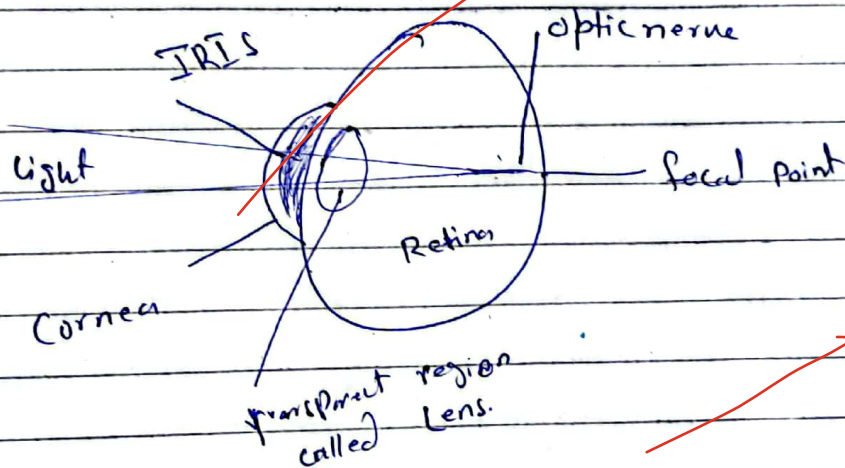 IRIS
optic nerve
light
focal point
Retina
Cornea
transparent region
called Lens.